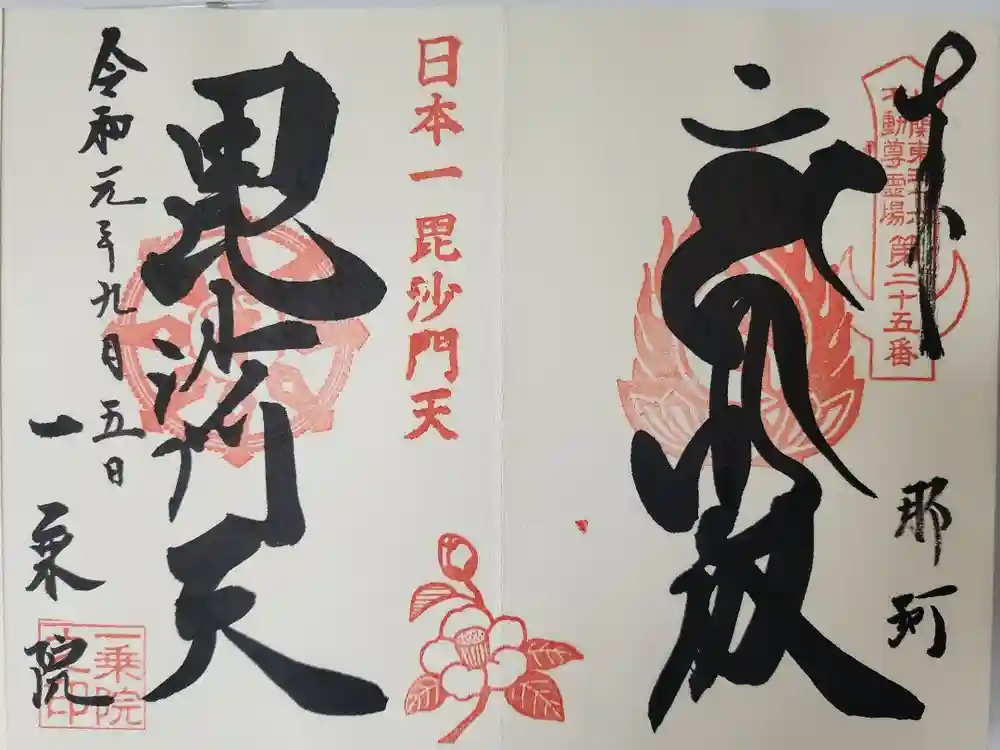 奉
北関東三十六
不動尊霊場 第二十五番
那珂
日本一 毘沙門天
毘沙門天
令和元年九月五日
一乗院
一乗院
之印